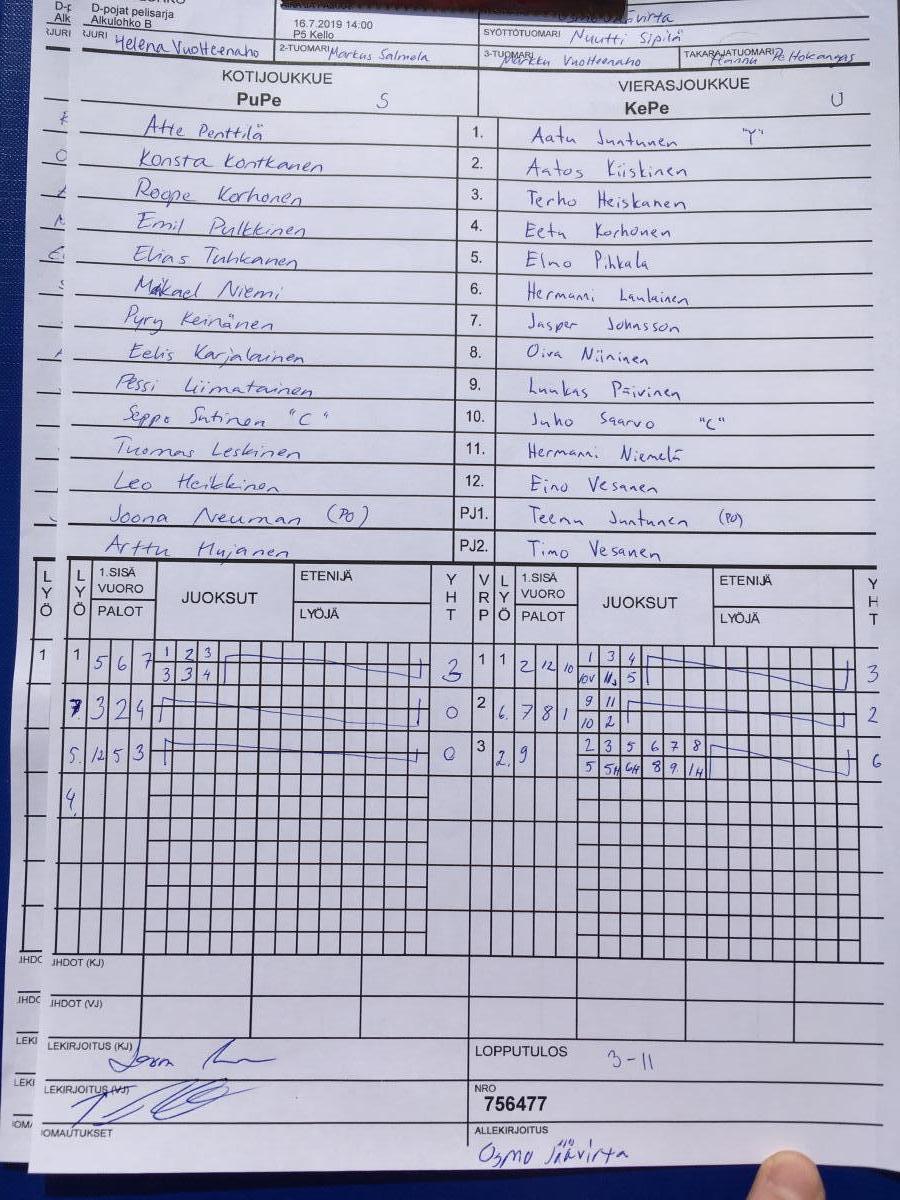 D-pojat pelisarja
Alkulohko B
16.7.2019 14:00
P5 Kello
SYÖTTÖTUOMARI Nuutti Sipilä
Helena Vuolteenaho 2-TUOMARI Markus Salmela 3-TUOMARI Markku Vuolteenaho TAKARAJATUOMARI Hannu
KOTIJOUKKUE VIERASJOUKKUE
PuPe S KePe U
Atte Penttilä 1. Aatu Juntunen "Y"
Konsta Kontkanen 2. Aatos Kiiskinen
Roope Korhonen 3. Terho Heiskanen
Emil Pulkkinen 4. Eetu Korhonen
Elias Tuhkanen 5. Elmo Pihkala
Mikael Niemi 6. Hermanni Laulainen
Pyry Keinänen 7. Jasper Johnsson
Eelis Karjalainen 8. Oiva Niininen
Pessi Liimatainen 9. Luukas Päivinen
Seppo Sutinen "C" 10. Juho Saarvo "C"
Tuomas Leskinen 11. Hermanni Niemelä
Leo Heikkinen 12. Eino Vesanen
Joona Neuman (PO) PJ1. Teemu Juntunen (PO)
Arttu Hujanen PJ2. Timo Vesanen
LYÖ LYÖ 1.SISÄ VUORO PALOT JUOKSUT ETENIJÄ LYÖJÄ YHT VRP LYÖ 1.SISÄ VUORO PALOT JUOKSUT ETENIJÄ LYÖJÄ YHT
1 1 5 6 7 1 2 3 3 1 1 2 12 10 1 3 4 3
3 3 4 10V 11J 5
7. 3 2 4 0 2 6. 7 8 1 9 11 2
10 2
5. 12 5 3 0 3 2. 9 2 3 5 6 7 8 6
5 5H 6H 8 9. 1H
4.
JHDOT (KJ)
JHDOT (VJ)
LEKIRJOITUS (KJ) LOPPUTULOS 3-11
LEKIRJOITUS (VJ) NRO
756477
OMAUTUKSET ALLEKIRJOITUS
Osmo Jäävirta